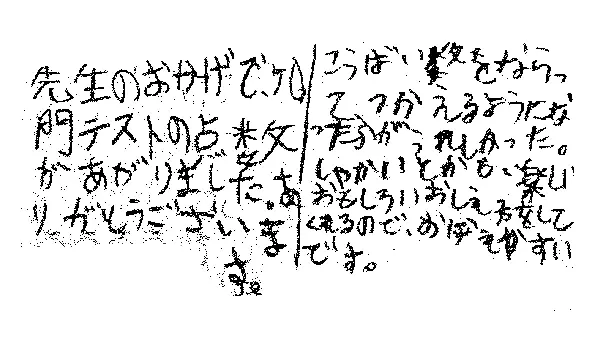 先生のおかげで、九
門テストの点数
があがりました。あ
りがとうございま
す。
こうばい数をならっ
て つかえるようにな
ったのがうれしかった。
しゃかいとかも、楽し
おもしろいおしえ方をして
くれるので、おぼえやすい
です。